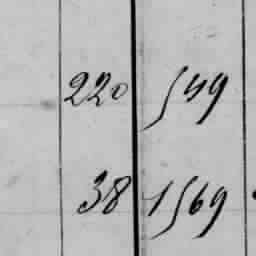 220 549
38 1569